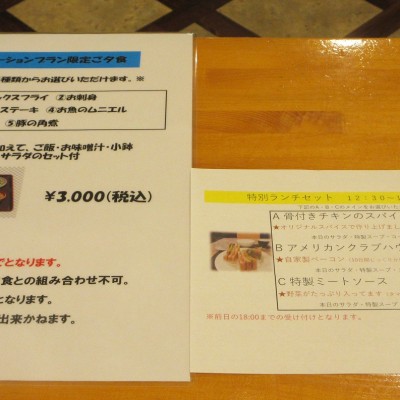 ーションプラン限定ご夕食
種類からお選びいただけます。※
ックスフライ ②お刺身
ステーキ ④お魚のムニエル
⑤豚の角煮
加えて、ご飯・お味噌汁・小鉢
サラダのセット付
¥3.000(税込)
でとなります。
食との組み合わせ不可。
ます。
出来かねます。
特別ランチセット 12:30～
下記のA・B・Cのメインをお選びいた
A骨付きチキンのスパイ
★オリジナルスパイスで作り上げまし
本日のサラダ・特製スープ・コー
Bアメリカンクラブハウ
★自家製ベーコン
本日のサラダ・特製スープ・
C 特製ミートソース
★野菜がたっぷり入ってます
本日のサラダ・特製スープ・コ
※前日の18:00までの受け付けとなります。